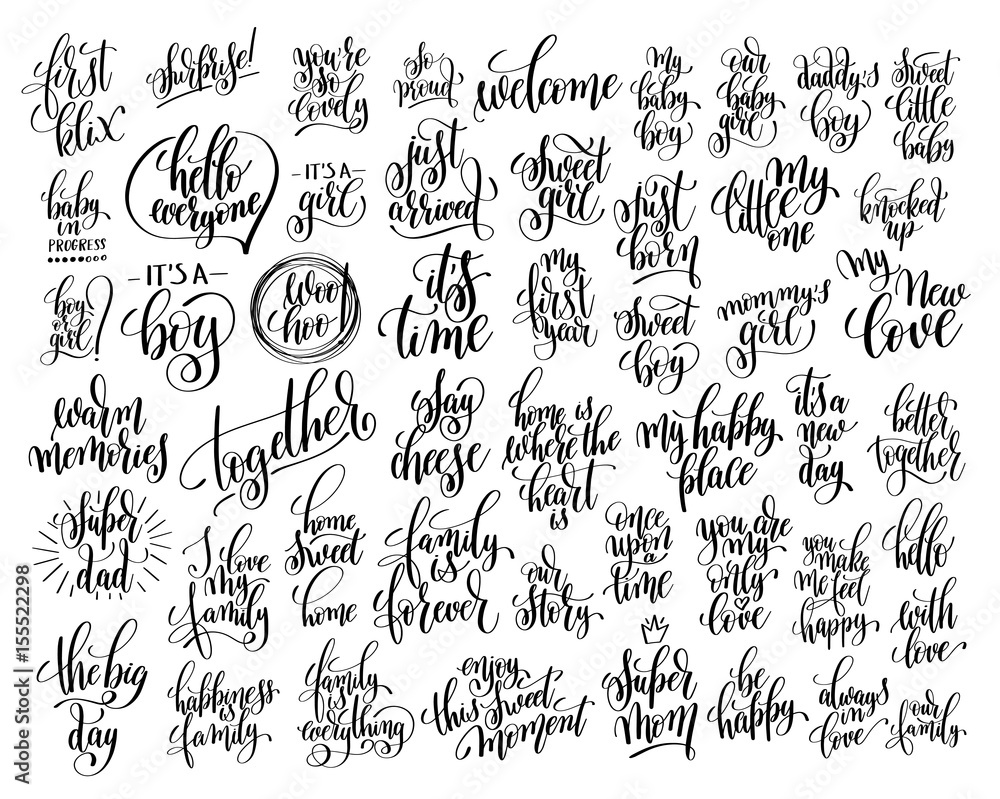 first
klix
surprise!
you're
so
lovely
so
proud
welcome
my
baby
boy
our
baby
girl
daddy's
boy
sweet
little
baby
baby
in
PROGRESS
hello
everyone
- IT'S A -
girl
just
arrived
sweet
girl
just
born
my
little
one
knocked
up
boy
or
girl?
- IT'S A -
boy
woo
hoo!
it's
time
my
first
year
sweet
boy
mommy's
girl
my new
love
warm
memories
together
say
cheese
home is
where the
heart
is
my happy
place
it's a
new
day
better
together
super
dad
I love
my
family
home
sweet
home
family
is
forever
our
story
once
upon
a
time
you are
my
only
love
you
make
me feel
happy
hello
with
love
the big
day
happiness
is
family
family
is
everything
enjoy
this sweet
moment
super
mom
be
happy
always
in
love
our
family
Adobe Stock | #155522298
Adobe Stock